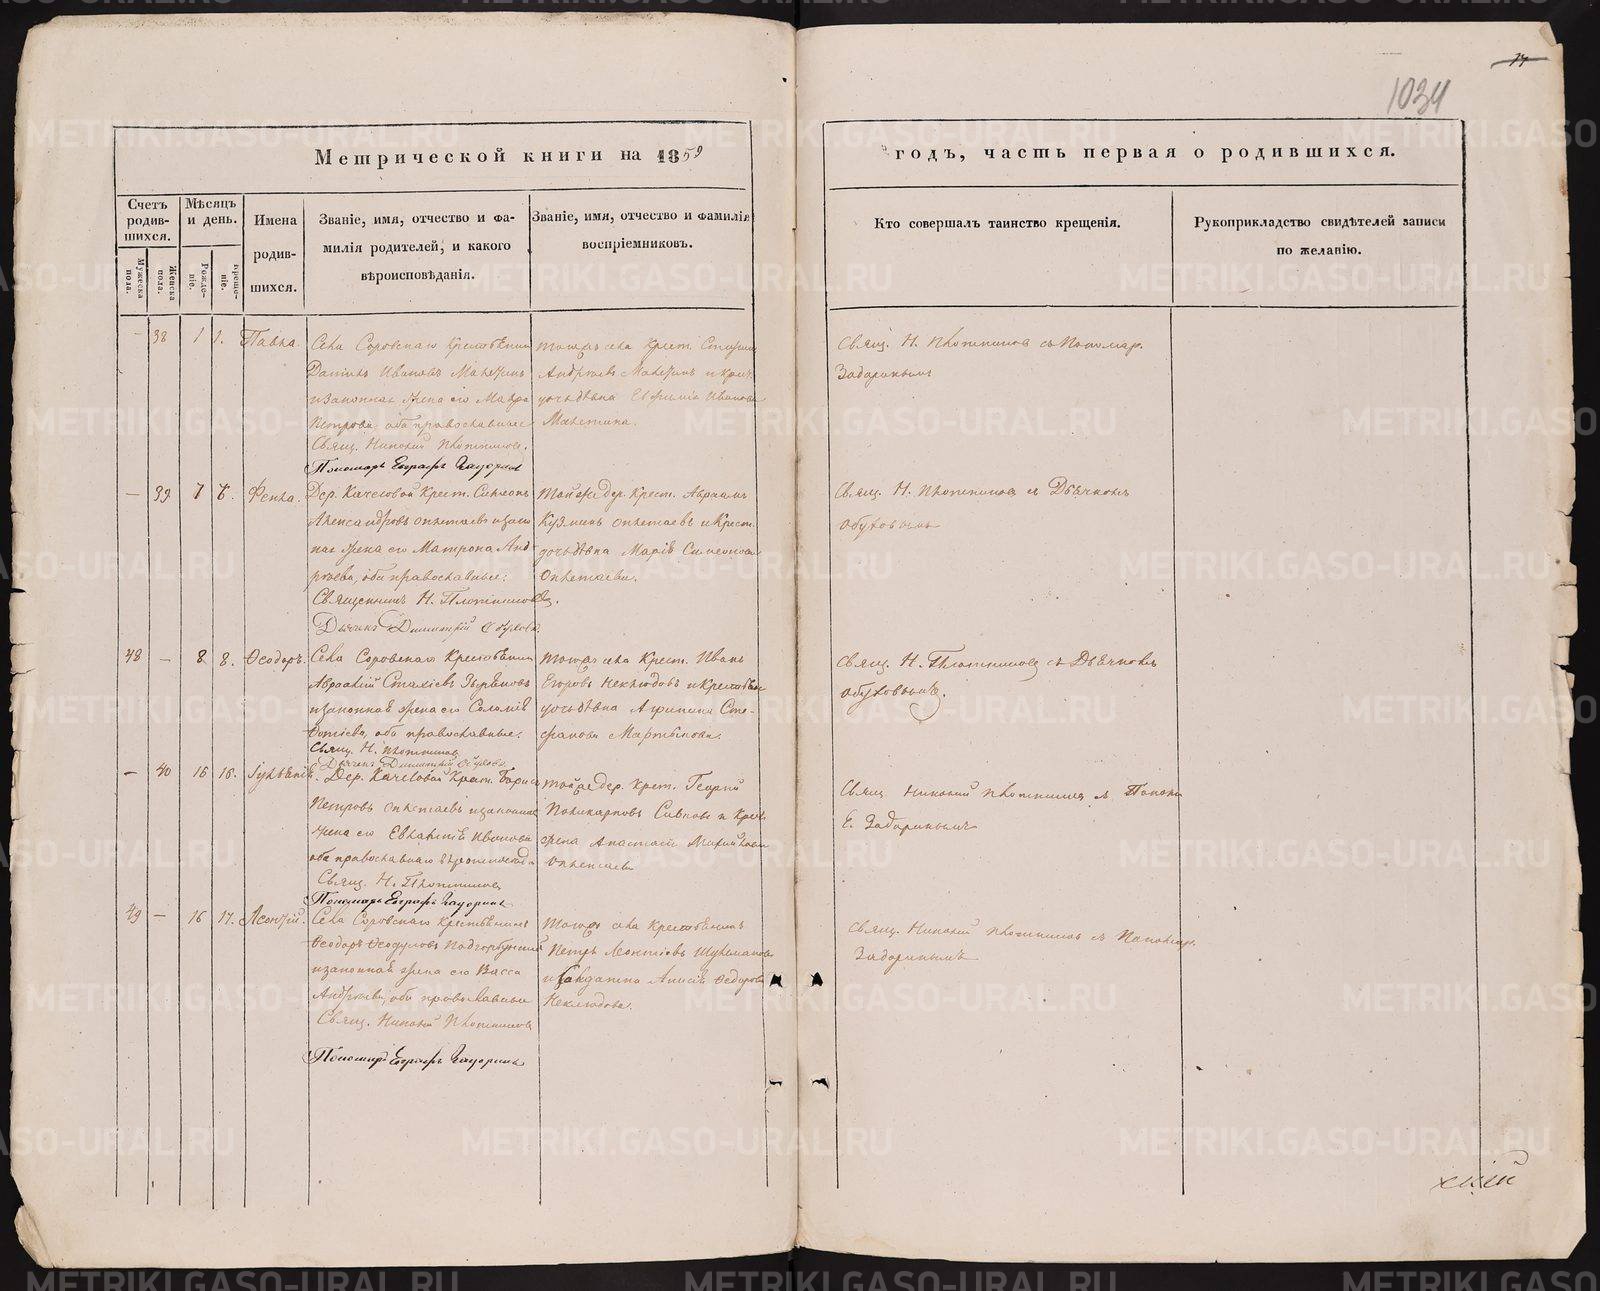 1034
Метрической книги на 1859
годъ, часть первая о родившихся.
Счетъ родив-шихся.
Мѣсяцъ и день.
Имена родив-шихся.
Званіе, имя, отчество и фа-
милія родителей, и какого
вѣроисповѣданія.
Званіе, имя, отчество и фамилія
воспріемниковъ.
Кто совершалъ таинство крещенія.
Рукоприкладство свидѣтелей записи
по желанію.
Мужеска пола.
Женска пола.
Рожде-ніе.
Креще-ніе.
— 38 1 1. Павла.
Села Соровскаго Крестьянинъ
Даніилъ Ивановъ
и законная жена его Мавра
Петрова, оба православные
Свящ. Николай Плотниковъ.
Пономарь Евграфъ Задоринъ
тогожъ села Крест.
Андреевъ
дочь дѣвка Евфимія Иванова
Свящ. Н. Плотниковъ съ Пономар.
Задоринымъ
— 39 7 8. Фекла.
Дер. Качесовой Крест. Симеонъ
Александровъ Опетаевъ и закон
ная жена его Матрона Анд-
реева, оба православные.
Священникъ Н. Плотниковъ.
Дьячекъ Димитрій Обуховъ.
тойже дер. Крест. Авраамъ
Кузминъ Опетаевъ и Крест.
дочь дѣвка Марія Симеонова
Опетаева.
Свящ. Н. Плотниковъ съ Дьячкомъ
Обуховымъ
48 — 8 8. Ѳеодоръ.
Села Соровскаго Крестьянинъ
Зыряновъ
и законная жена его Соломія
Ѳотіева, оба православные.
Свящ. Н. Плотниковъ
Дьячекъ Димитрій Обуховъ.
тогожъ села Крест. Иванъ
Егоровъ Неклюдовъ и Крестьян.
дочь дѣвка Агрипина Сте-
фанова Мартынова.
Свящ. Н. Плотниковъ съ Дьячкомъ
Обуховымъ.
— 40 16 16. Іуліанія.
Дер. Качесовой Крест. Борисъ
Петровъ Опетаевъ и законная
жена его Евлампія Иванова
оба православнаго вѣроисповѣд.
Свящ. Н. Плотниковъ
Пономарь Евграфъ Задоринъ
тойже дер. Крест. Георгій
Поликарповъ и Крест.
жена Анастасія Михайлова
Опетаева
Свящ. Николай Плотниковъ съ Поном.
Е. Задоринымъ
49 — 16 17. Леонтій.
Села Соровскаго Крестьянинъ
Ѳеодоръ Ѳеодуловъ Подгорбунскій
и законная жена его Васса
Андреева, оба православные
Свящ. Николай Плотниковъ
Пономарь Евграфъ Задоринъ
тогожъ села Крестьянинъ
Петръ Леонтіевъ
и солдатка Анисія Ѳедорова
Неклюдова.
Свящ. Николай Плотниковъ съ Пономар.
Задоринымъ